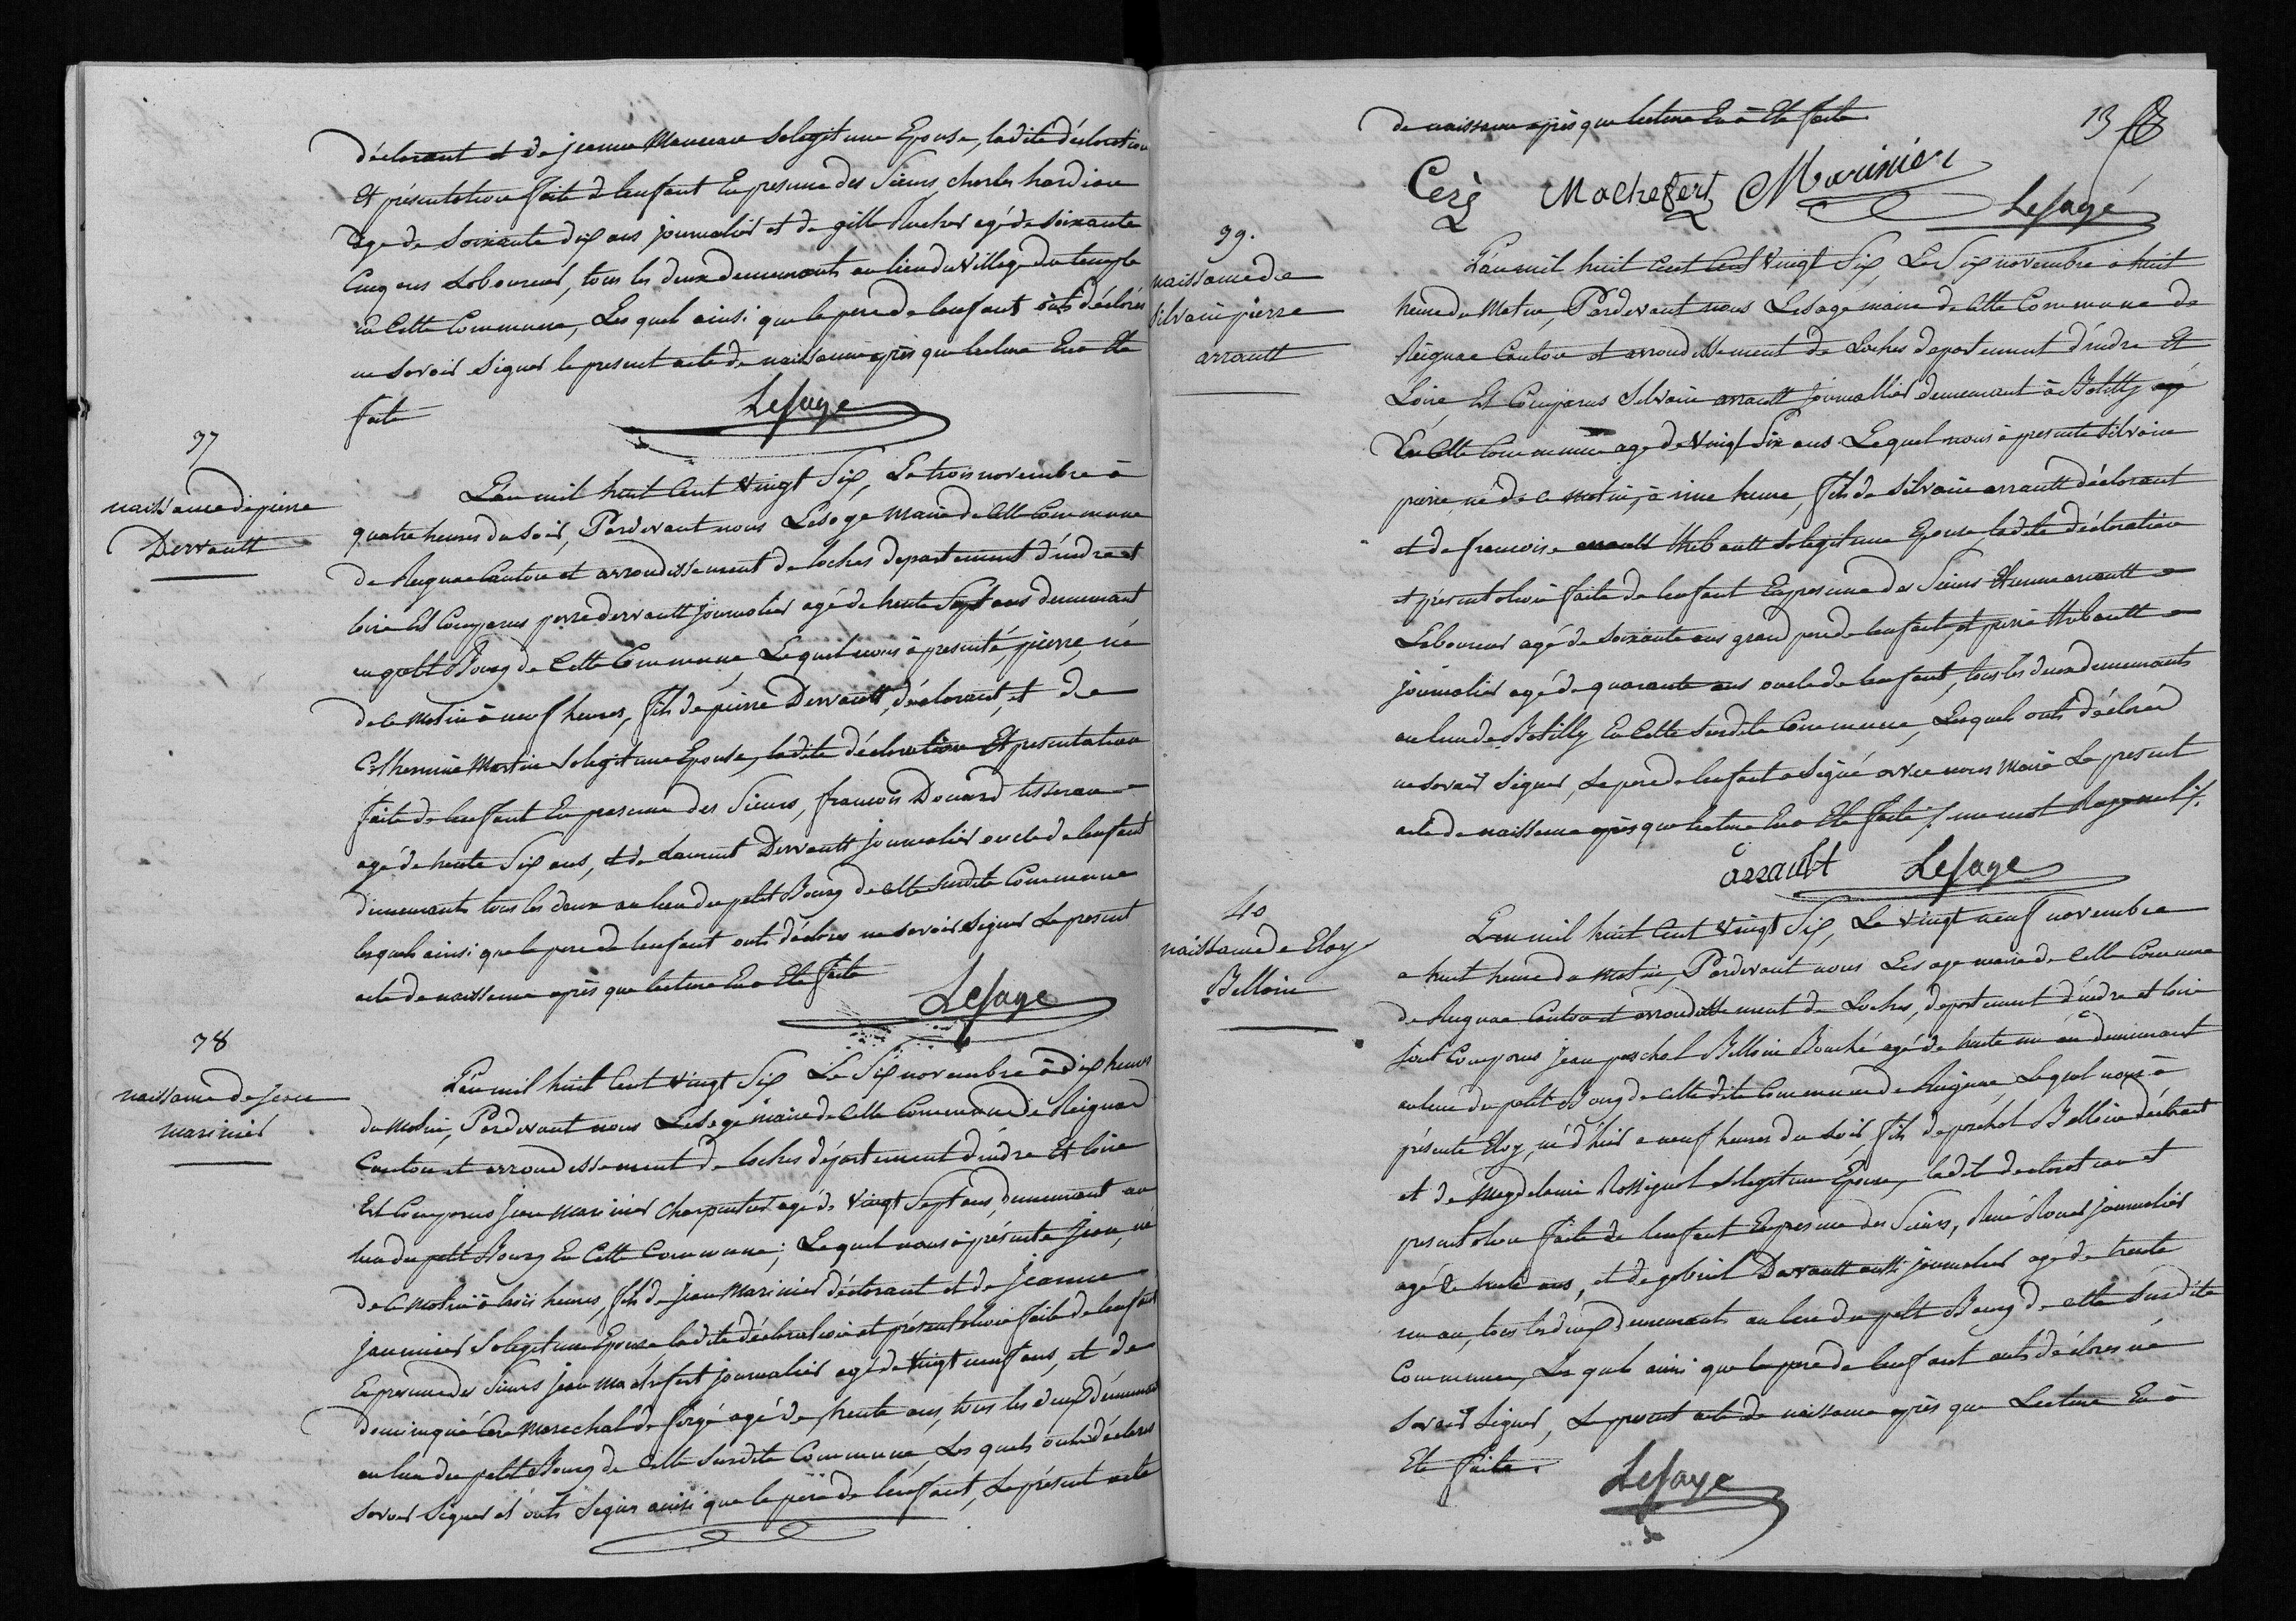 déclarant et de jeanne Manceau Solegitime Epouse, ladite déclaration
Et présentation faite de lenfant En presence des Sieurs, charles hardion
agé de Soixante dix ans journalier et de gille Rucher agé de Soixante
Cinq ans Laboureur, tous les deux demeurants au lieu du village du temple
en Cette Commune, Les quels ainsi que le pere de lenfant onts déclarés
ne Savoir Signer le present acte de naissance après que lecture En a Ete
faite
Lesage
37
naissance de pierre
Dervault
L'an mil huit Cent Vingt Six, Le trois novembre à
quatre heures du Soir, Pardevant nous Lesage Maire de Cette Commune
de Reignac Canton et arrondissement de loches departement d'indre et
loire Est Comparus pierre dervault journalier agé de trente Sept ans demeurant
au petit Bourg de Cette Commune, Lequel nous à presenté, pierre, né
de ce Matin à neuf heures, fils de pierre Dervault, déclarant, et de
Catherinne Martin Solegitime Epouse, ladite déclaration Et presentation
faite de lenfant En presence des Sieurs, francois Douard tisseran
agé de trente Six ans, et de Laurent Dervault journalier oncle de lenfant
demeurants tous les deux au lieu du petit Bourg de cette Susdite Commune
lesquels ainsi que le pere de lenfant onts déclarés ne Savoir Signer Le present
acte de naissance après que lecture En a Ete faite
Lesage
38
naissance de Jean
marinier
L'an mil huit Cent Vingt Six Le Six novembre à dix heures
du Matin, Pardevant nous Lesage maire de Cette Commune de Reignac
Canton et arrondissement de loches département d'indre Et loire
Est Comparus Jean Marinier Charpentier agé de Vingt Sept ans, demeurant au
lieu du petit Bourg En Cette Commune; Lequel nous à présenté Jean, né
de ce Matin à trois heures, fils de Jean Marinier déclarant et de Jeanne
Solegitime Epouse ladite déclaration et présentation faite de lenfant
En présence des Sieurs Jean Machefert journalier agé de Vingt neuf ans, et de
Dominique Céré Marechal de forge agé de trente ans, tous les deux demeurants
au lieu du petit Bourg de Cette Susdite Commune, Les quels onts déclarés
Savoir Signer et onts Signés ainsi que le père de lenfant, Le présent acte
13
de naissance après que lecture En à Ete faite
Cerè Machefert Marinier
Lesage
39.
naissance de
Silvain pierre
arrault
L'an mil huit Cent Cent Vingt Six, Le Six novembre à huit
heure du Matin, Pardevant nous Lesage maire de Cette Commune de
Reignac Canton et arrondissement de Loches departement d'indre Et
Loire, Est Comparus Silvain arrault journallier demeurant à Batilly
En Cette Commune agé de Vingt Six ans Lequel nous à presenté Silvain
pierre, né de ce matin, à une heure, fils de Silvain arrault déclarant
et de francoise arrault thibault Solegitime Epouse, ladite déclaration
et presentation faite de lenfant En presence des Sieurs Etienne arrault
Laboureur agé de Soixante ans grand pere de lenfant, et pierre thibault
journalier agé de quarante ans oncle de lenfant, tous les deux demeurants
au lieu de Batilly En Cette Susdite Commune, Lesquels onts déclarés
ne Savoir Signer, Le pere de lenfant a Signé avec nous Maire Le present
acte de naissance après que lecture En a Ete faite /. un mot Rayé nul /.
arrault Lesage
40
naissance de Eloy
Belloin
L'an mil huit Cent Vingt Six, Le Vingt neuf novembre
a huit heure du Matin, Pardevant nous Lesage maire de Cette Commune
de Reignac Canton et arrondissement de Loches, departement d'indre et loire
Comparus Jean paschal Belloin agé de trente un an demeurant
au lieu du petit Bourg de Cette dite Commune de Reignac, Lequel nous à
présenté Eloy, né d'hier a neuf heures du Soir, fils de paschal Belloin déclarant
et de Magdelaine Rossignol Solegitime Epouse, ladite déclaration et
presentation faite de lenfant En presence des Sieurs, René journalier
agé de trente ans, et de gabriel Darrault aussi journalier agé de trente
un an, tous les deux demeurants au lieu du petit Bourg de cette Susdite
Commune, Les quels ainsi que le pere de lenfant onts déclarés ne
Savoir Signer, Le present acte de naissance après que Lecture En à
Ete faite.
Lesage